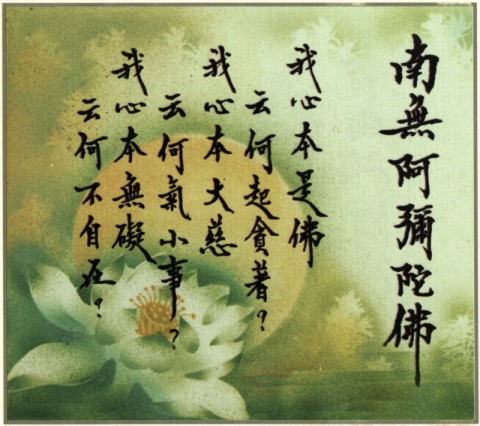 南無阿彌陀佛
我心本是佛
云何起貪著?
我心本大慈
云何氣小事?
我心本無礙
云何不自在?